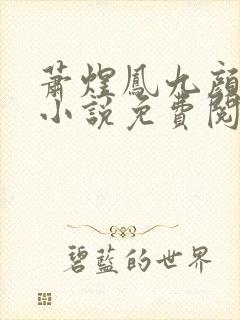 蕭煌鳳九顔
小說免費閱
碧藍的世界